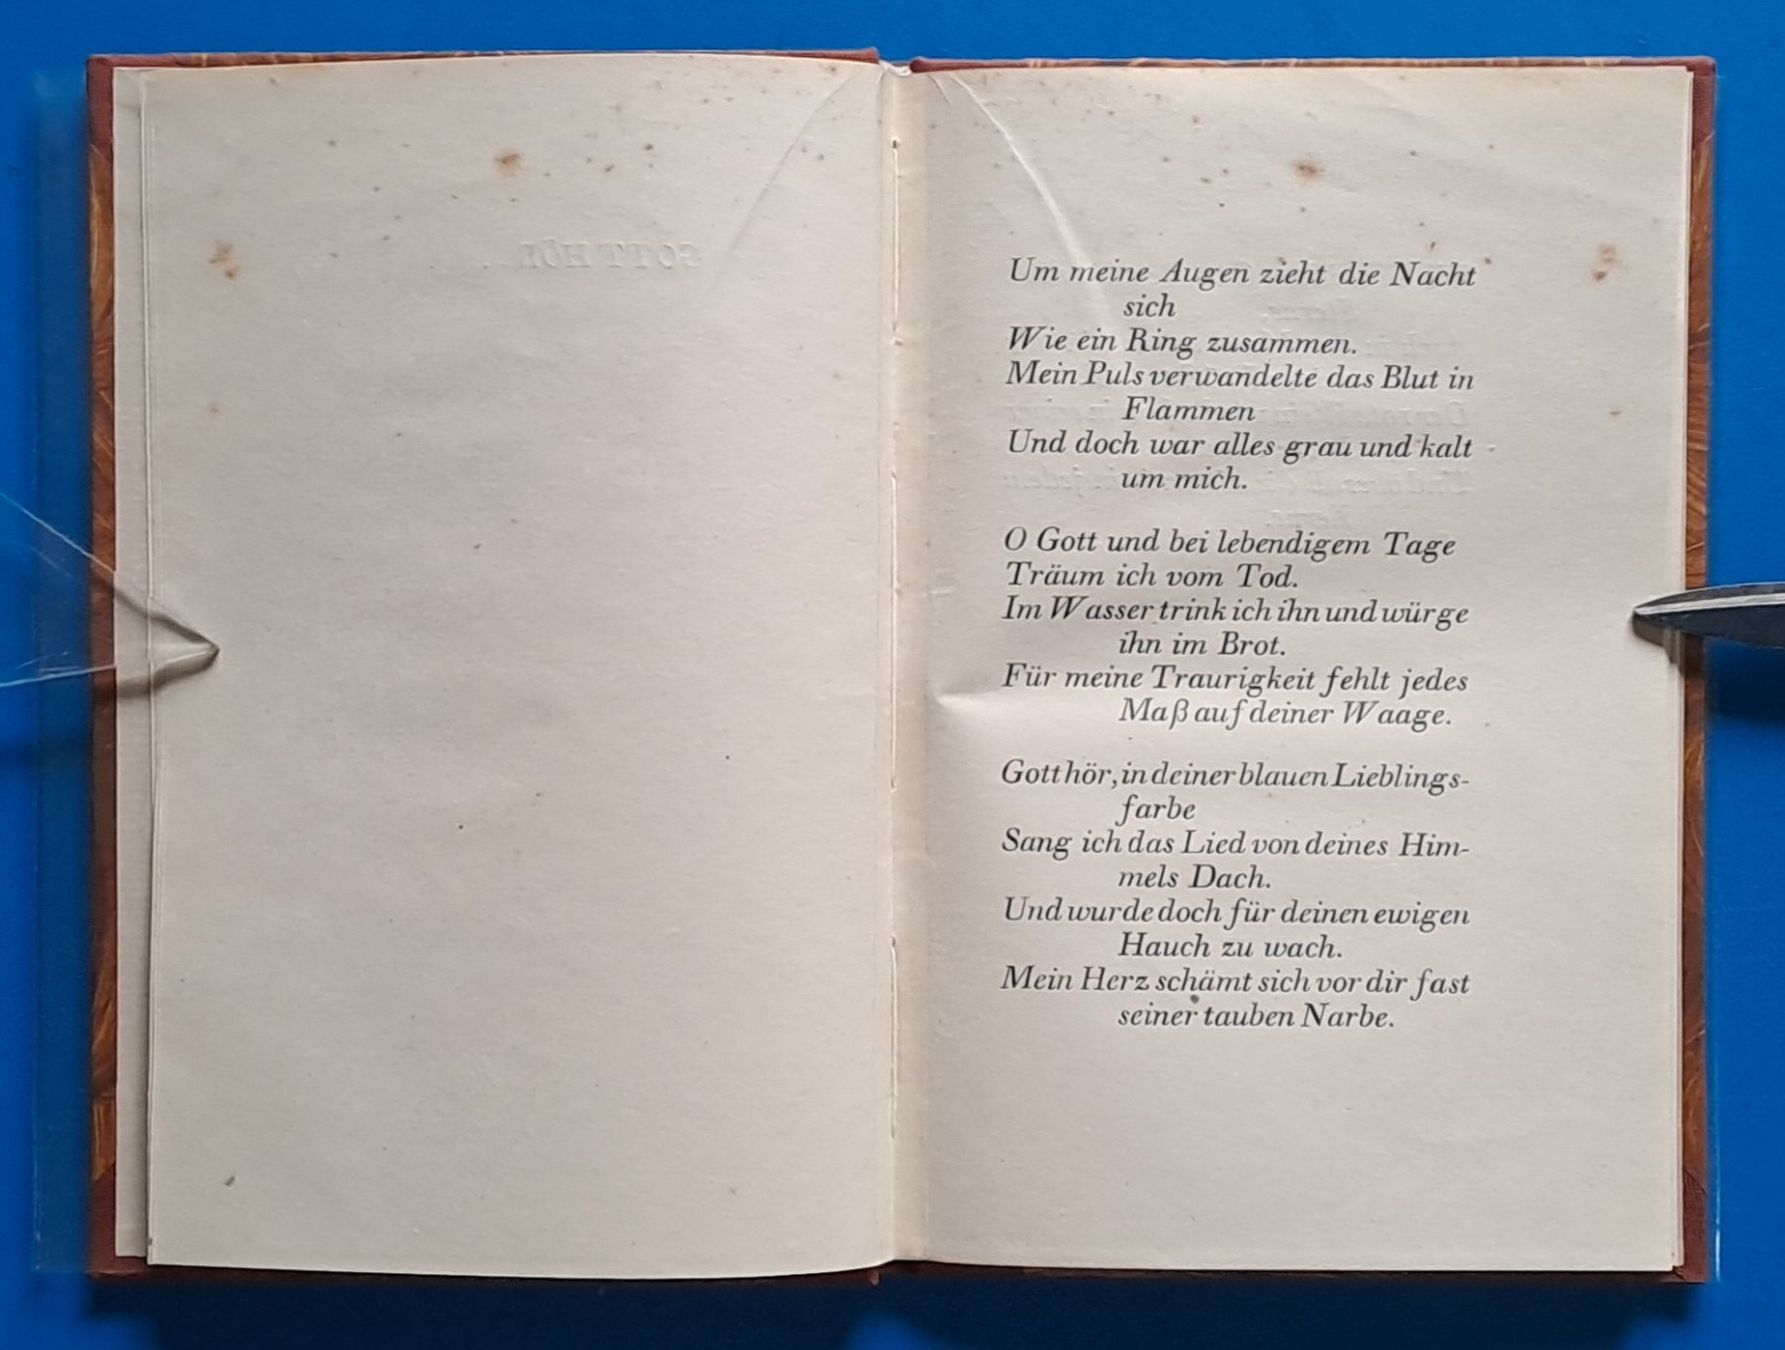 GOTT HÖR . . .
Um meine Augen zieht die Nacht
sich
Wie ein Ring zusammen.
Mein Puls verwandelte das Blut in
Flammen
Und doch war alles grau und kalt
um mich.
O Gott und bei lebendigem Tage
Träum ich vom Tod.
Im Wasser trink ich ihn und würge
ihn im Brot.
Für meine Traurigkeit fehlt jedes
Maß auf deiner Waage.
Gott hör, in deiner blauen Lieblings-
farbe
Sang ich das Lied von deines Him-
mels Dach.
Und wurde doch für deinen ewigen
Hauch zu wach.
Mein Herz schämt sich vor dir fast
seiner tauben Narbe.